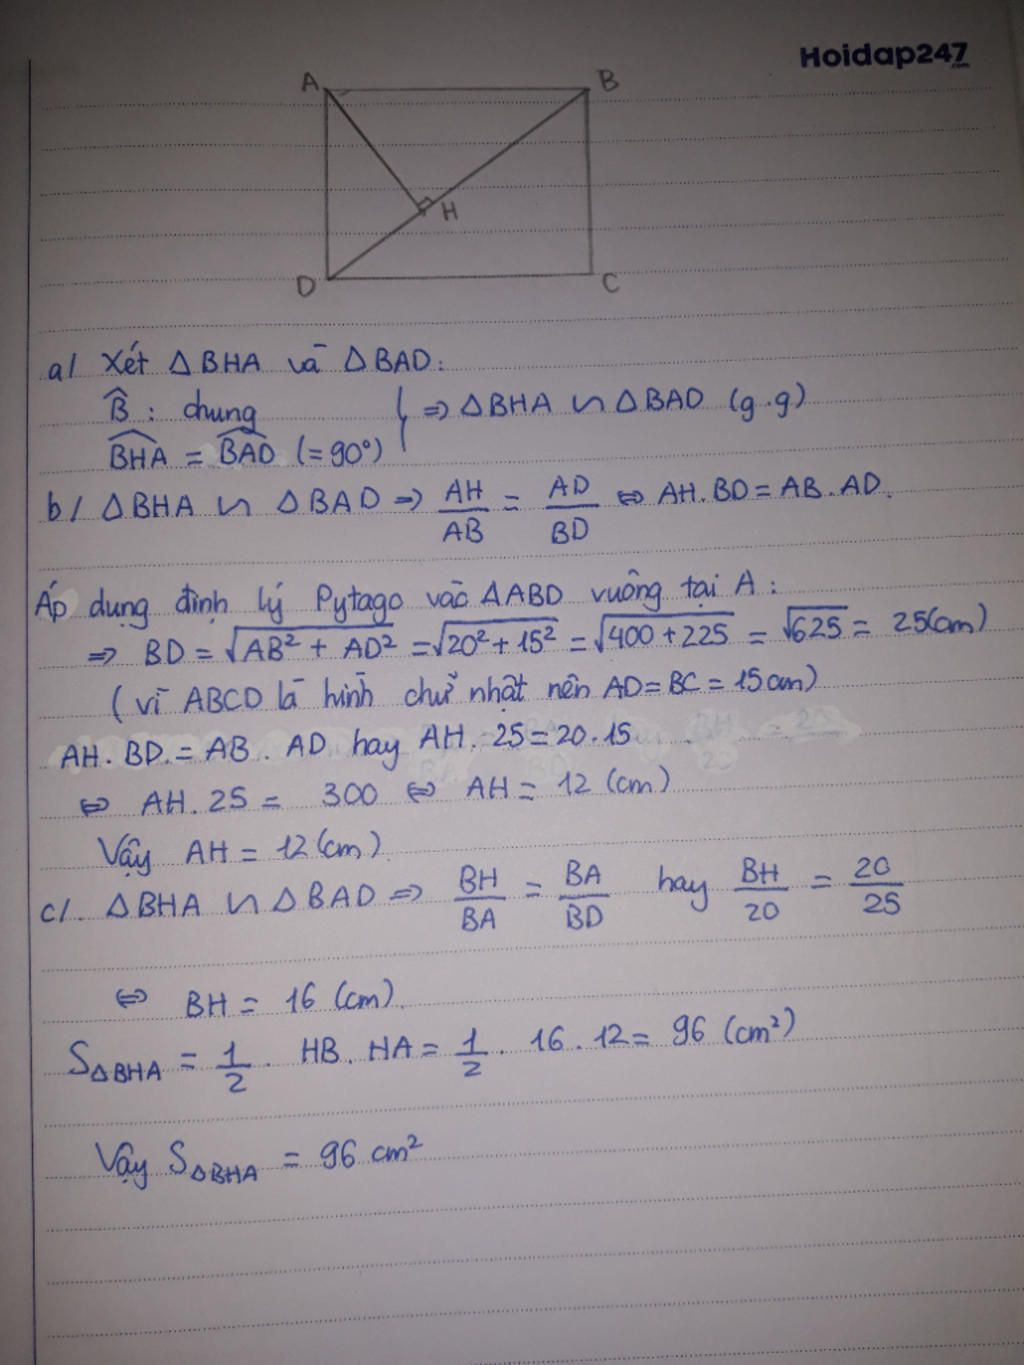 Hoidap247
.com
A B
H
D C
a/ Xét ΔBHA và ΔBAD:
B̂ : chung
⇒ ΔBHA ∽ ΔBAD (g.g)
BHA = BAD (=90°)
b/ ΔBHA ∽ ΔBAD ⇒ AH/AB = AD/BD ⇔ AH.BD = AB.AD.
Áp dụng định lý Pytago vào ΔABD vuông tại A:
⇒ BD = √AB² + AD² = √20² + 15² = √400 + 225 = √625 = 25(cm)
(vì ABCD là hình chữ nhật nên AD = BC = 15cm)
AH. BD. = AB. AD hay AH. 25 = 20.15
⇔ AH. 25 = 300 ⇔ AH = 12 (cm)
Vậy AH = 12(cm).
c/. ΔBHA ∽ ΔBAD ⇒ BH/BA = BA/BD hay BH/20 = 20/25
⇔ BH = 16 (cm).
SΔBHA = 1/2 . HB. HA = 1/2 . 16.12 = 96 (cm²)
Vậy SΔBHA = 96 cm²